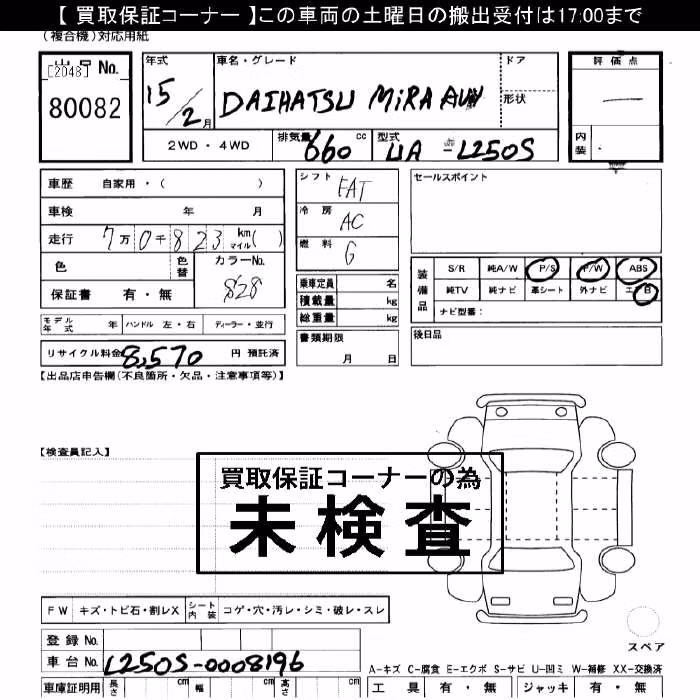 【 買取保証コーナー 】この車両の土曜日の搬出受付は17:00まで
(複合機)対応用紙
[2048] No.
80082
年式 15/2月
車名・グレード DAIHATSU MiRA
ドア
形状
評価点
内装
2WD・4WD
排気量 660 cc
型式 UA-L250S
車歴 自家用・( )
車検 年 月
走行 7万0千823 km マイル( )
色 色替 カラーNo. 828
保証書 有・無
シフト FAT
冷房 AC
燃料 G
乗車定員 名
積載量 kg
総重量 kg
書類期限 月 日
セールスポイント
装備品
S/R 純A/W P/S P/W ABS
純TV 純ナビ 革シート 外ナビ エアB
ナビ型番:
後日品
モデル年式 年 ハンドル 左・右 ディーラー・並行
リサイクル料金 8,570 円 預託済
【出品店申告欄(不良箇所・欠品・注意事項等)】
【検査員記入】
買取保証コーナーの為
未検査
FW キズ・トビ石・割レX シート内装 コゲ・穴・汚レ・シミ・破レ・スレ
登録 No.
車台 No. L250S-0008196
車庫証明用 長さ cm 幅 cm 高さ cm
スペア
A-キズ C-腐食 E-エクボ S-サビ U-凹ミ W-補修 XX-交換済
工具 有・無 ジャッキ 有・無